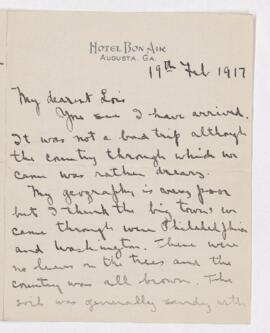 HOTEL BON AIR
AUGUSTA, GA.
19th Feb 1917
My dearest Lois
You see I have arrived.
It was not a bad trip although
the country through which we
came was rather dreary.
My geography is very poor
but I think the big towns we
came through were Philadelphia
and Washington. There were
no leaves on the trees and the
country was all brown. The
soil was generally sandy with